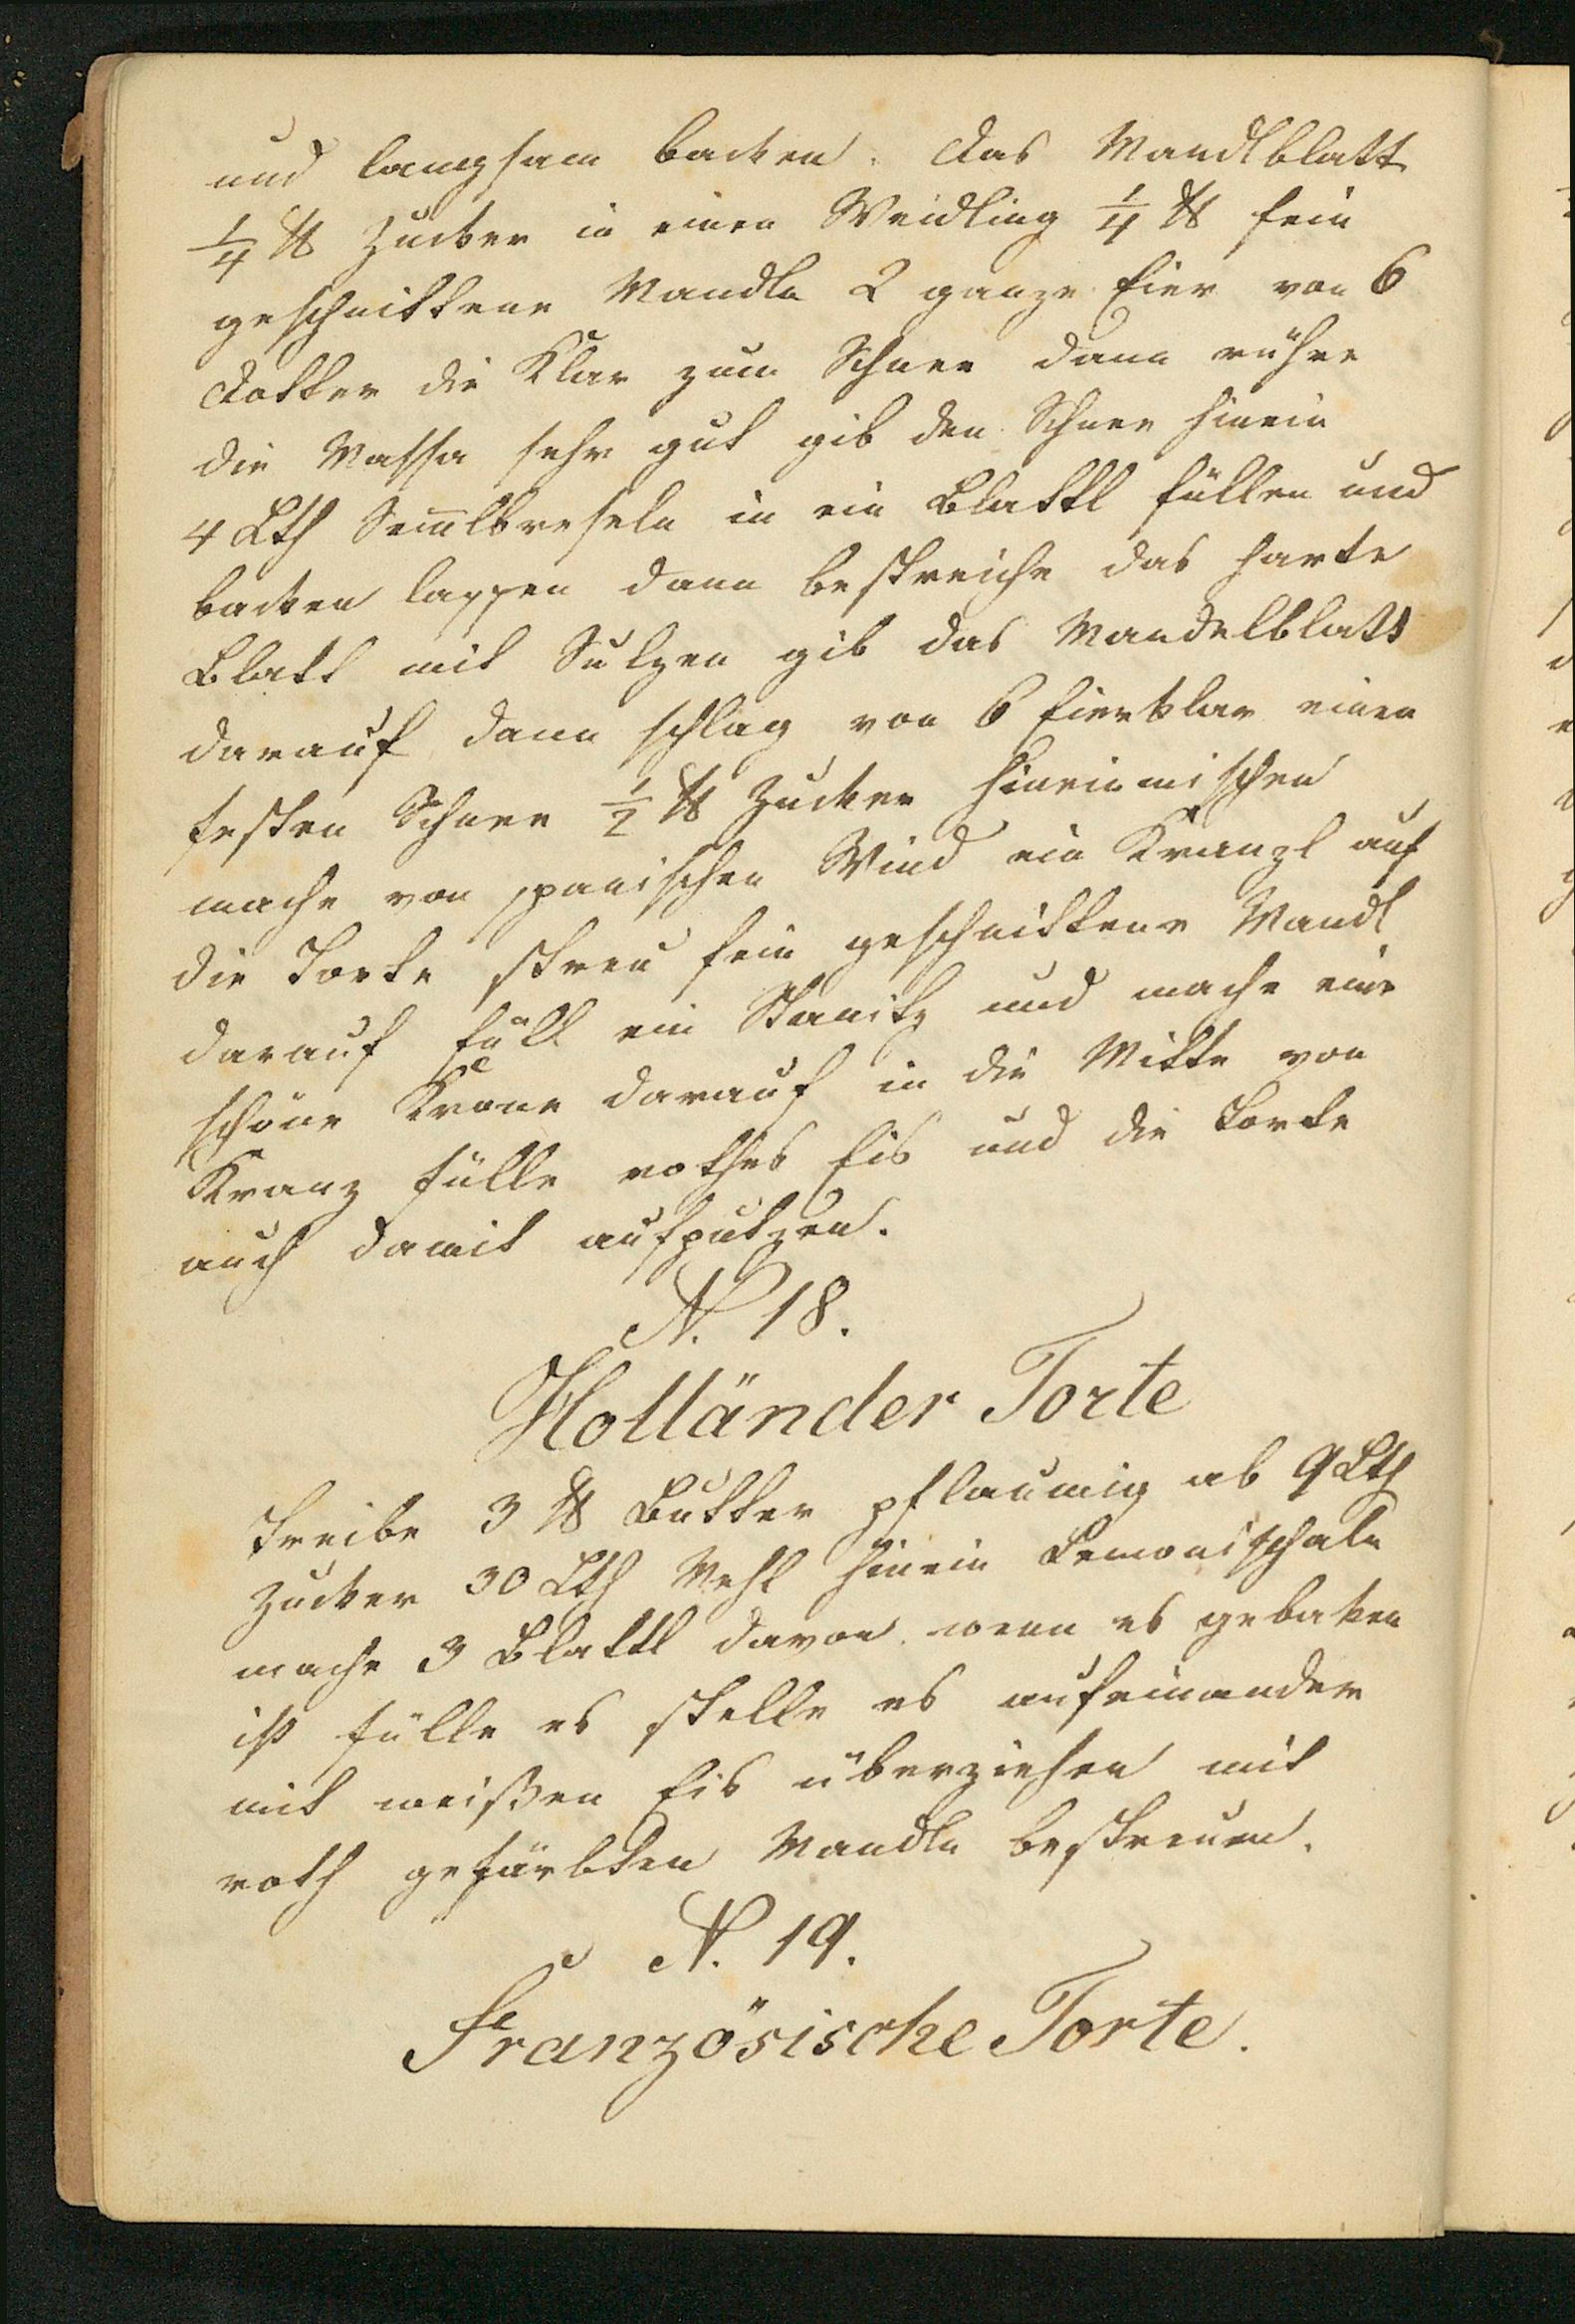 und langsam backen. das Mandlblatt
1/4 ℔ Zucker in einen Weidling 1/4 ℔ fein
geschnittene Mandln 2 ganze Eier von 6
Dotter die Klar zum Schnee dann rühre
die Massa sehr gut gib den Schnee hinein
4 Lth Sem̅lbreseln in ein Blattl füllen und
backen lassen dann bestreiche das harte
Blatt mit Sulzen gib das Mandelblatt
darauf dann schlag von 6 Eierklar einen
festen Schnee 1/2 ℔ Zucker hineinmischen
mache von spanischen Wind ein Kranzl auf
die Torte streu fein geschnittene Mandl
darauf füll ein Stanitz und mache eine
schöne Krone darauf in die Mitte von
Kranz fülle rothes Eis und die Torte
auch damit aufputzen.
N. 18.
Holländer Torte
Treibe 3 ℔ Butter pflaumig ab 9 Lth
Zucker 30 Lth Mehl hinein Lemonischale
mache 3 Blattl davon wenn es gebaken
ist fülle es stelle es aufeinander
mit weißen Eis überziehen mit
roth gefärbten Mandln bestreuen.
N. 19.
Französische Torte.